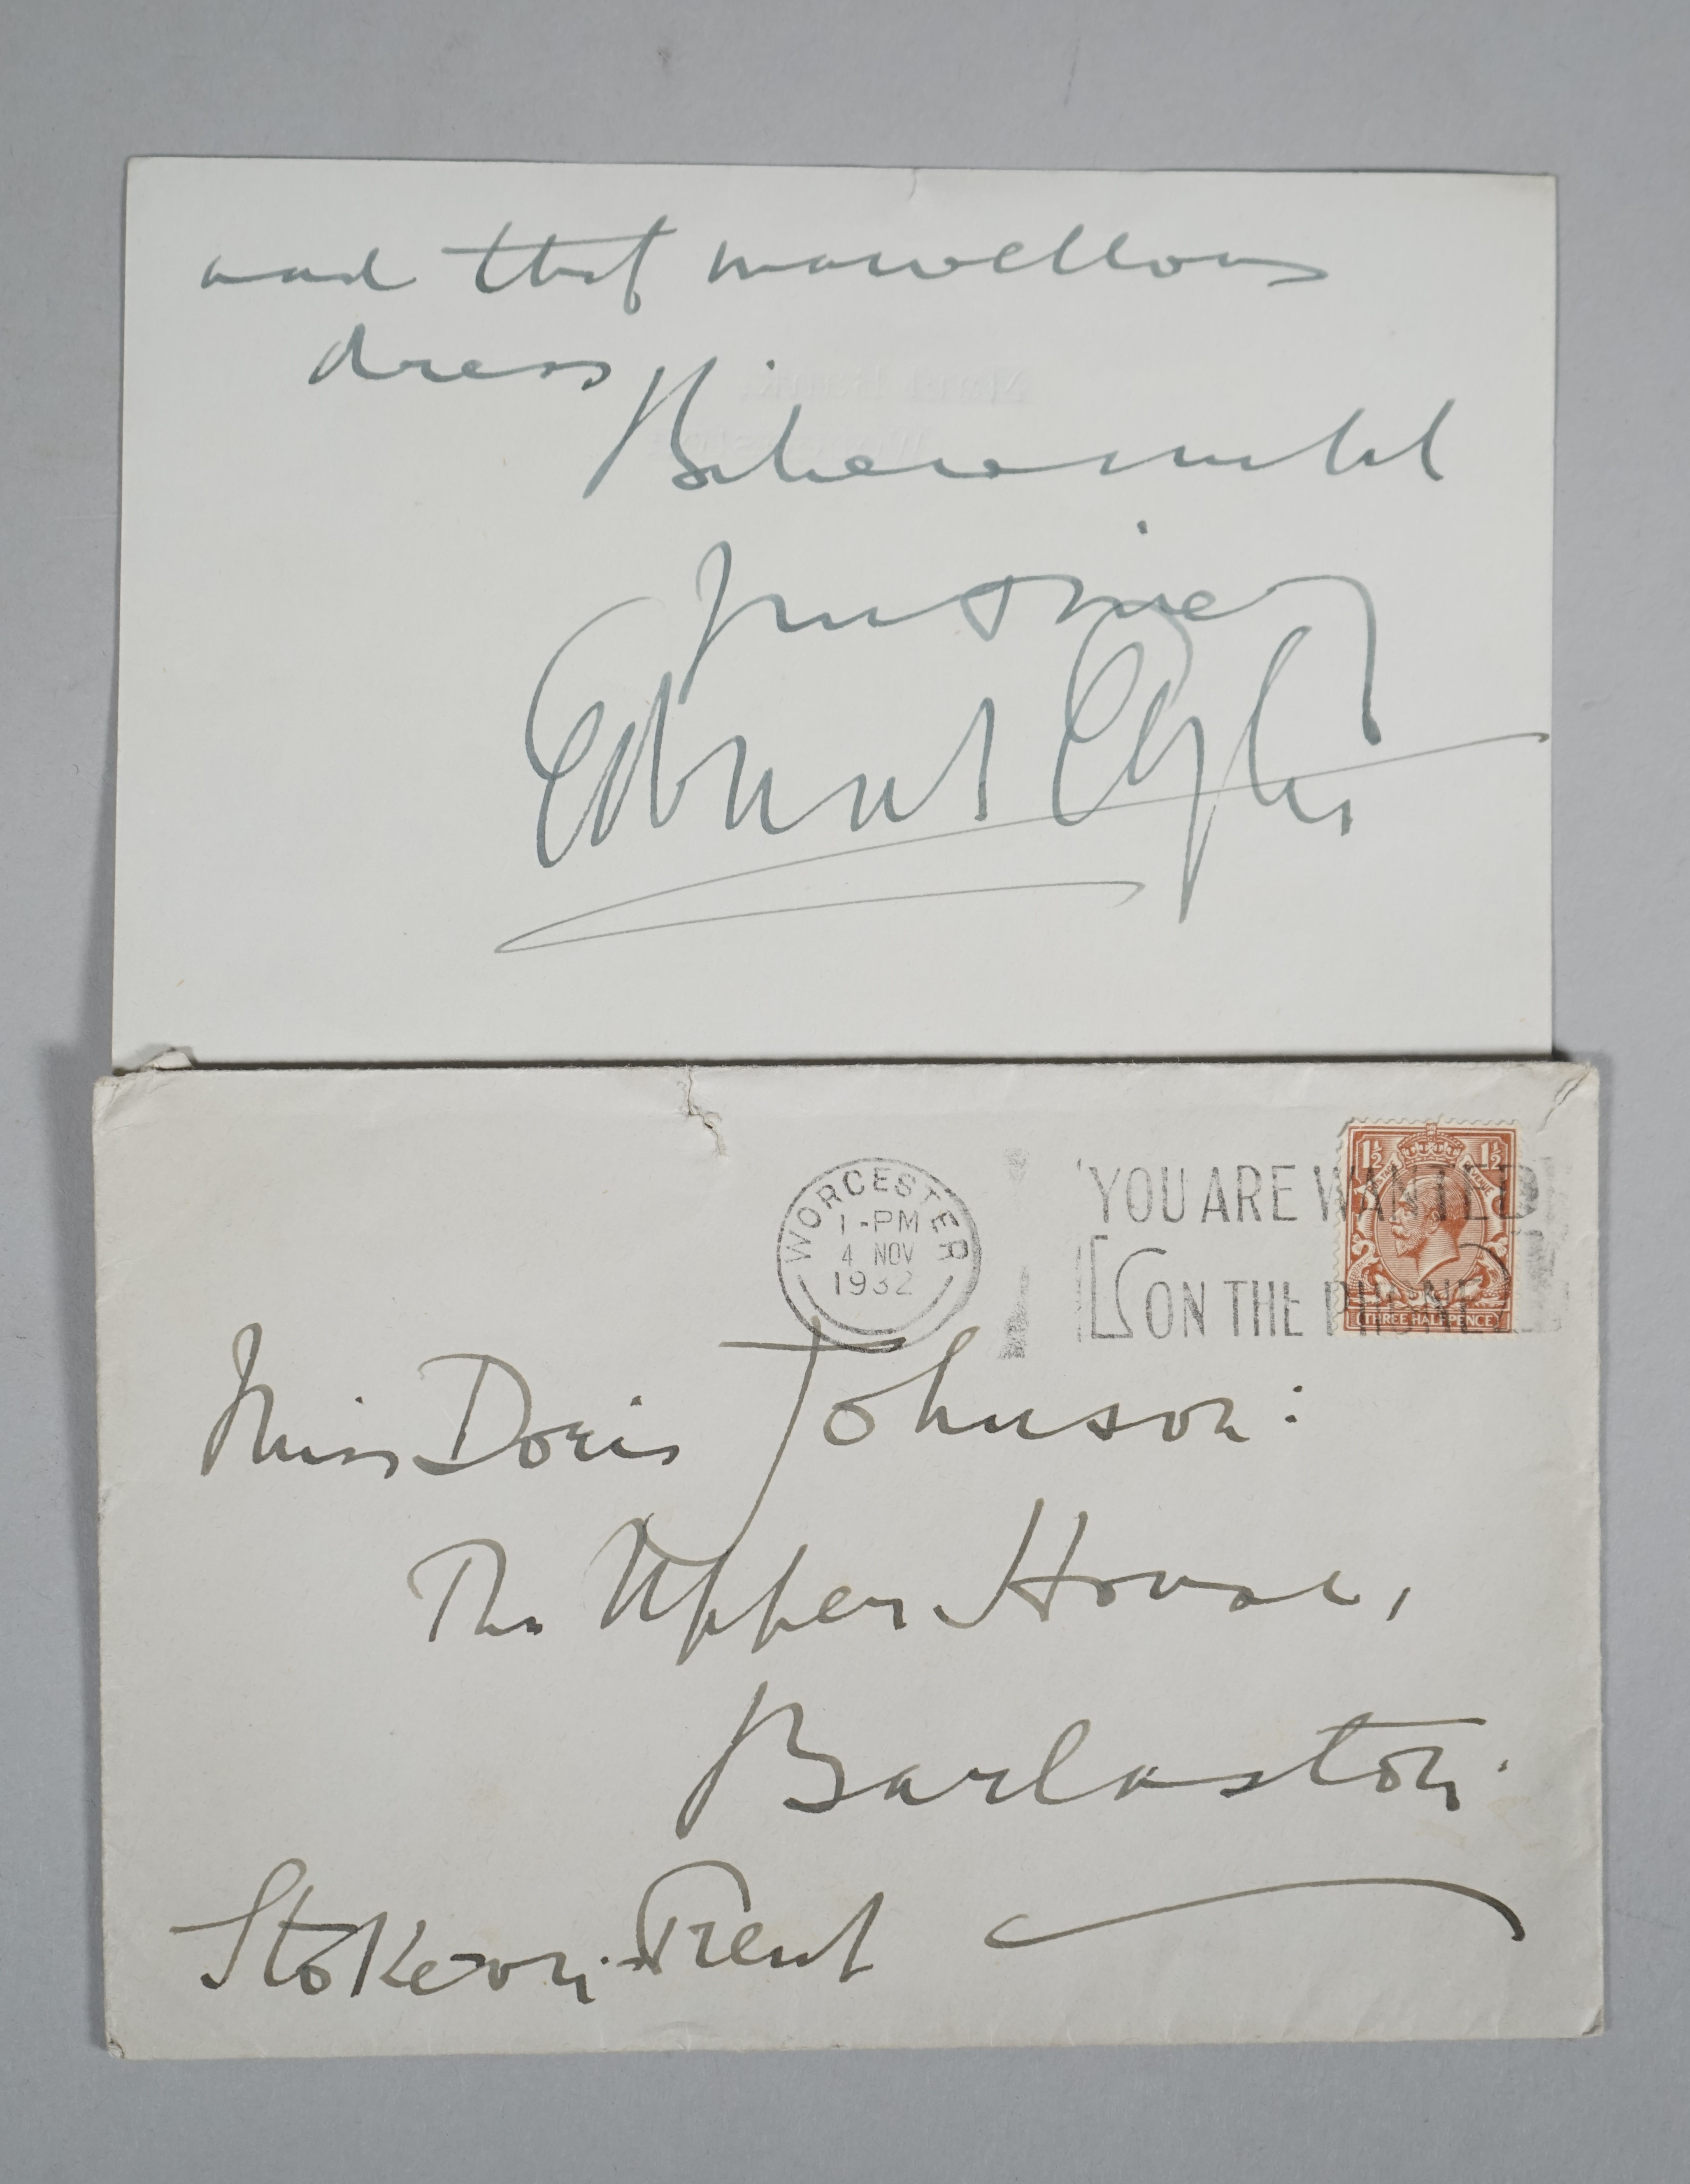 and that marvellous
dress
Yours sincerely
Edward Elgar
WORCESTER
1-PM
4 NOV
1932
YOU ARE WANTED
ON THE PHONE
1½ 1½
THREE HALFPENCE
Miss Doris Johnson:
The Upper House,
Barlaston.
Stoke-on-Trent